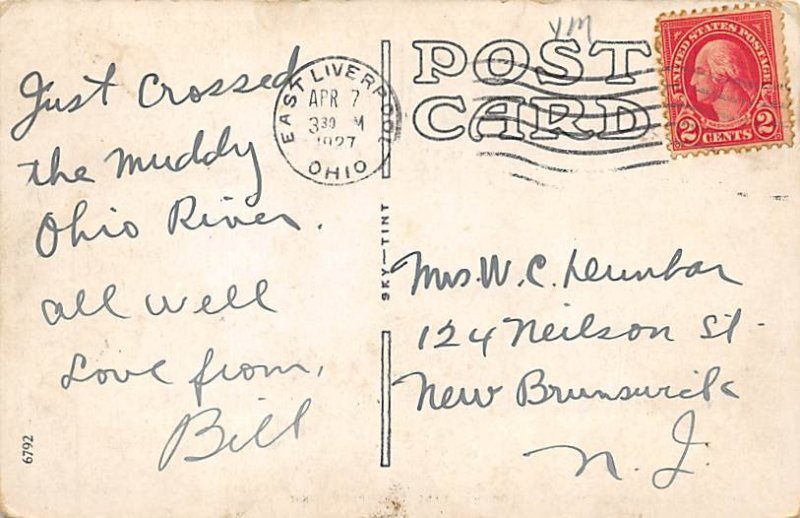 Just Crossed
the Muddy
Ohio River.
All well
Love from,
Bill
6792
EAST LIVERPOOL
APR 7
3 30 M
1927
OHIO
SKY-TINT
YM
POST
CARD
UNITED STATES POSTAGE
2 CENTS 2
Mrs. W. C. Dunbar
124 Neilson St.
New Brunswick
N. J.